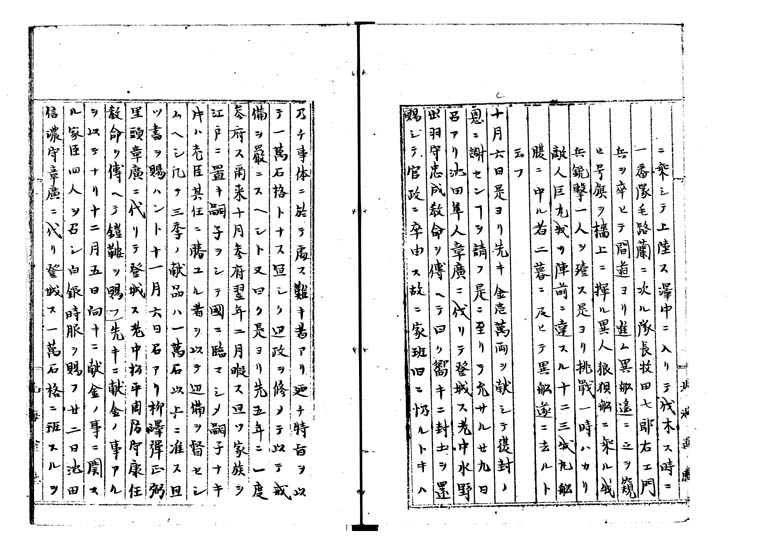 ニ乘シテ上陸ス澤中ニ入リテ伐木ス時ニ
一番隊毛路蘭ニ次ル隊長牧田七郎右エ門
兵ヲ卒ヒテ間道ヨリ進ム異船遙ニ之ヲ窺
ヒ号旗ヲ檣上ニ揮ル異人狼狽船ニ乘ル我
兵銃擊一人ヲ殪ス是ヨリ挑戰一時ハカリ
敵人巨丸我カ陣前ニ達スル十二三我丸船
腹ニ中ル若二暮ニ及ヒテ異船遂ニ去ルト
云フ
十月六日是ヨリ先キ金壱萬両ヲ献シテ復封ノ
恩ニ謝センヿヲ請フ是ニ至リテ允サル廿九日
召アリ池田隼人章廣ニ代リテ登城ス老中水野
出羽守忠成敎命ヲ傳ヘテ曰ク嚮キニ封土ヲ還
賜シテ官政ニ卒由ス故ニ家班旧ニ仍ルトキハ
乃チ事体ニ於テ處シ難キ者アリ廼チ特旨ヲ以
テ一萬石格トナス旦シク辺政ヲ修メテ以テ戒
備ヲ嚴ニスヘシト又曰ク是ヨリ先五年ニ一度
参府ス爾来十月参府翌年二月暇ス且ツ家族ヲ
江戸ニ置キ嗣子ヲシテ國ニ臨マシメ嗣子ナキ
片ハ老臣其任ニ勝ユル者ヲ以テ辺備ヲ督セシ
ムヘシ凡テ三季ノ献品ハ一萬石以上ニ准ス且
ツ書ヲ賜ハント十一月六日召アリ柳澤彈正弼
里顕章廣ニ代リテ登城ス老中松平周防守康任
敎命ヲ傳ヘテ鎧鞍ヲ賜フ先キニ献金ノ事アル
ヲ以テナリ十二月五日向キニ献金ノ事ニ関ス
ル家臣四人ヲ召シ白銀時服ヲ賜フ廿二日池田
信濃守章廣ニ代リ登城ス一萬石格ニ班スルヲ